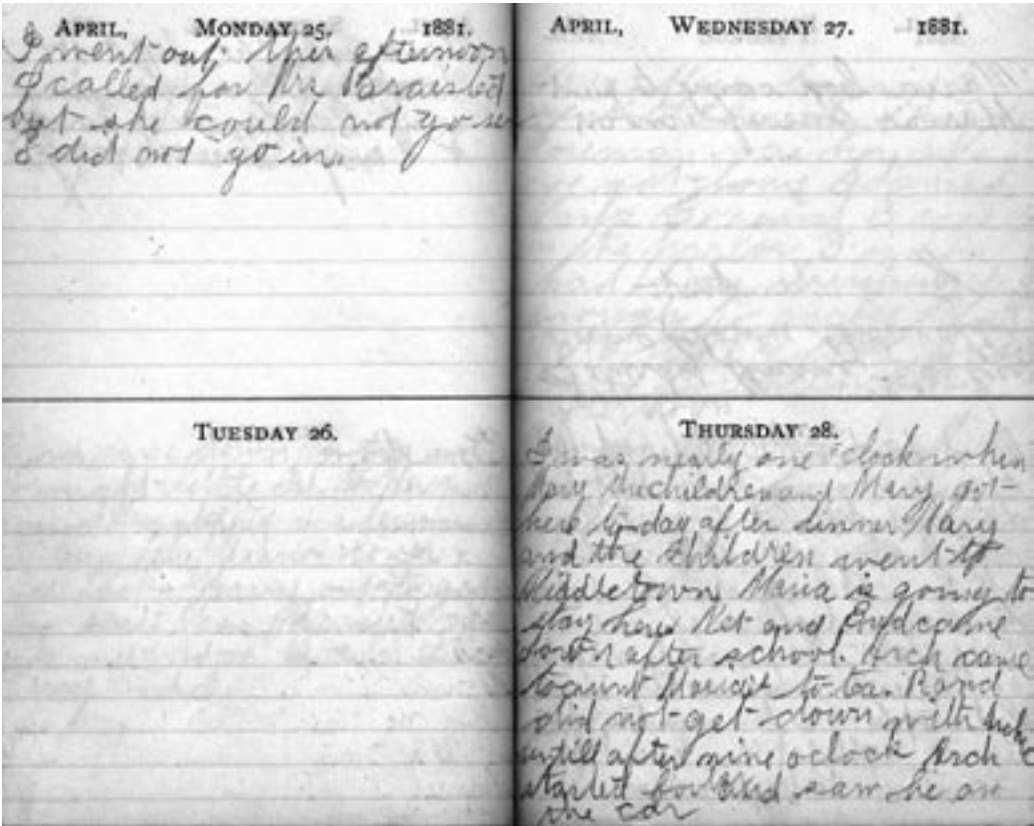 APRIL, MONDAY 25. 1881.
I went out this afternoon
I called for Mr
but she could not go so
I did not go in.
TUESDAY 26.
APRIL, WEDNESDAY 27. 1881.
THURSDAY 28.
I was nearly one oclock when
Mary the children and Mary got
here to day after dinner Mary
and the children went to
Middletown Maria is going to
stay here Net and came
down after school. Arch came
to aunt to tea. Rand
did not get down with
untill after nine oclock Arch
started for and saw he on
the car